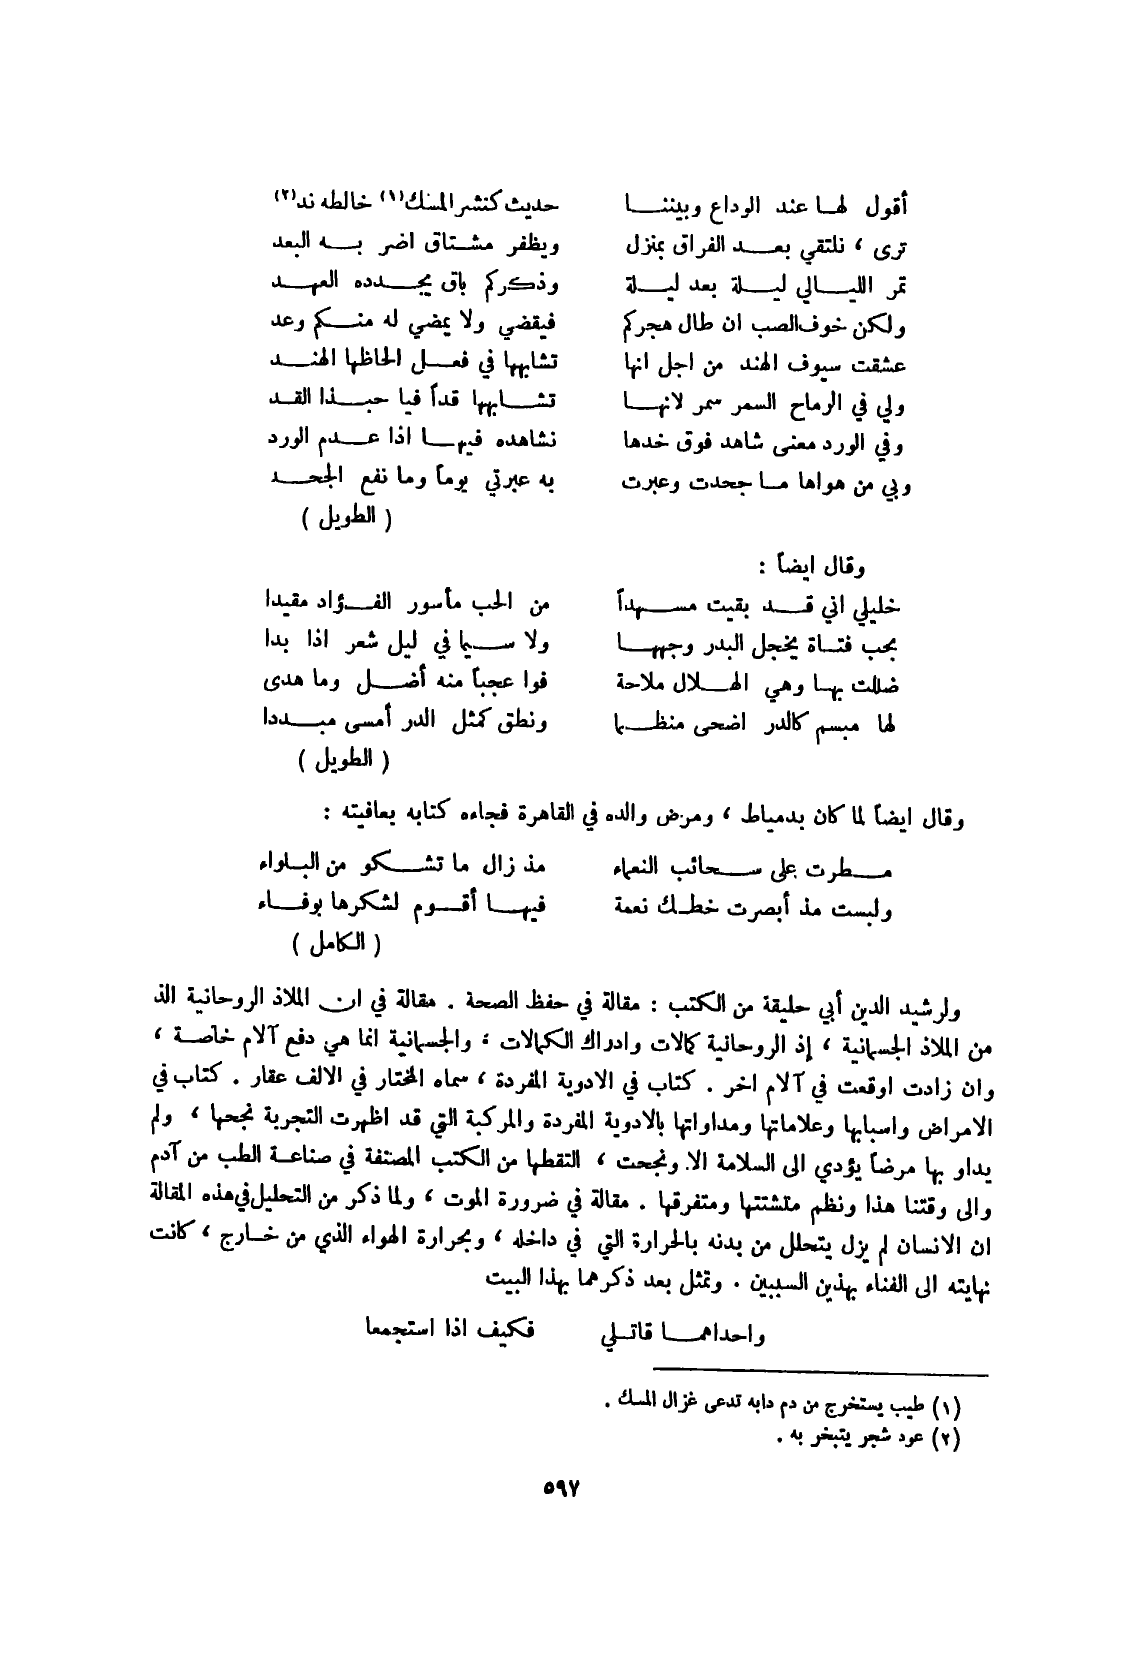 أقول لهـا عند الوداع وبيننـــا حديث كنشر المسك(١) خالطه ند(٢)
ترى ، نلتقي بعـد الفراق بمنزل ويظفر مشـتاق اضر بـه البعد
تمر الليـالي ليـلة بعد ليـلة وذكركم باق يجـدده العهـد
ولكن خوف الصب ان طال هجركم فيقضي ولا يمضي له منـكم وعد
عشقت سيوف الهند من اجل انها تشابهها في فعـل الحاظها الهنـد
ولي في الرماح السمر سمر لانهـا تشـابهها قداً فيا حبـذا القـد
وفي الورد معنى شاهد فوق خدها نشاهده فيهـا اذا عـدم الورد
وبي من هواها مـا جحدت وعبرت به عبرتي يوماً وما نفع الجحـد
( الطويل )
وقال ايضاً :
خليلي اني قـد بقيت مسـهداً من الحب مأسور الفـؤاد مقيدا
بحب فتـاة يخجل البدر وجههـا ولا سـيما في ليل شعر اذا بدا
ضللت بهـا وهي الهـلال ملاحة فوا عجباً منه أضـل وما هدى
لها مبسم كالدر اضحى منظـما ونطق كمثل الدر أمسى مبـددا
( الطويل )
وقال ايضاً لما كان بدمياط ، ومرض والده في القاهرة فجاءه كتابه بعافيته :
مـطرت علي سـحائب النعماء مذ زال ما تشـكو من البـلواء
ولبست مذ أبصرت خطـك نعمة فيهـا أقـوم لشكرها بوفـاء
( الكامل )
ولرشيد الدين أبي حليقة من الكتب : مقالة في حفظ الصحة . مقالة في ان الملاذ الروحانية الذ
من الملاذ الجسمانية ، إذ الروحانية كمالات وادراك الكمالات ، والجسمانية انما هي دفع آلام خاصـة ،
وان زادت اوقعت في آلام اخر . كتاب في الادوية المفردة ، سماه المختار في الالف عقار . كتاب في
الامراض واسبابها وعلاماتها ومداواتها بالادوية المفردة والمركبة التي قد اظهرت التجربة نجحها ، ولم
يداو بها مرضاً يؤدي الى السلامة الا ونجحت ، التقطها من الكتب المصنفة في صناعـة الطب من آدم
والى وقتنا هذا ونظم متشتتها ومتفرقها . مقالة في ضرورة الموت ، ولما ذكر من التحليل في هذه المقالة
ان الانسان لم يزل يتحلل من بدنه بالحرارة التي في داخله ، وبحرارة الهواء الذي من خـارج ، كانت
نهايته الى الفناء بهذين السببين . وتمثل بعد ذكرهما بهذا البيت
واحداهمـا قاتـلي فكيف اذا استجمعا
(١) طيب يستخرج من دم دابه تدعى غزال المسك .
(٢) عود شجر يتبخر به .
٥٩٧